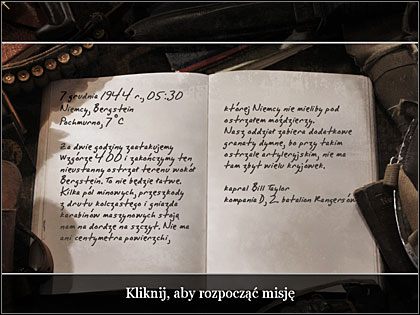 7 grudnia 1944 r, 05:30
Niemcy, Bergstein
Pochmurno, 7°C
Za dwie godziny zaatakujemy
Wzgórze 400 i zakończymy ten
nieustanny ostrzał terenu wokół
Bergstein. To nie będzie łatwe.
Kilka pól minowych, przeszkody
z drutu kolczastego i gniazda
karabinów maszynowych stoją
nam na dordze na szczyt. Nie ma
ani centymetra powierzchi,
której Niemcy nie mieliby pod
ostrzałem moździerzy.
Nasz oddział zabiera dodatkowe
granaty dymne, bo przy takim
ostrzale artyleryjskim, nie ma
tam zbyt wielu kryjówek.
kapral Bill Taylor
kompania D, 2. batalion Rangersów
Kliknij, aby rozpocząć misję